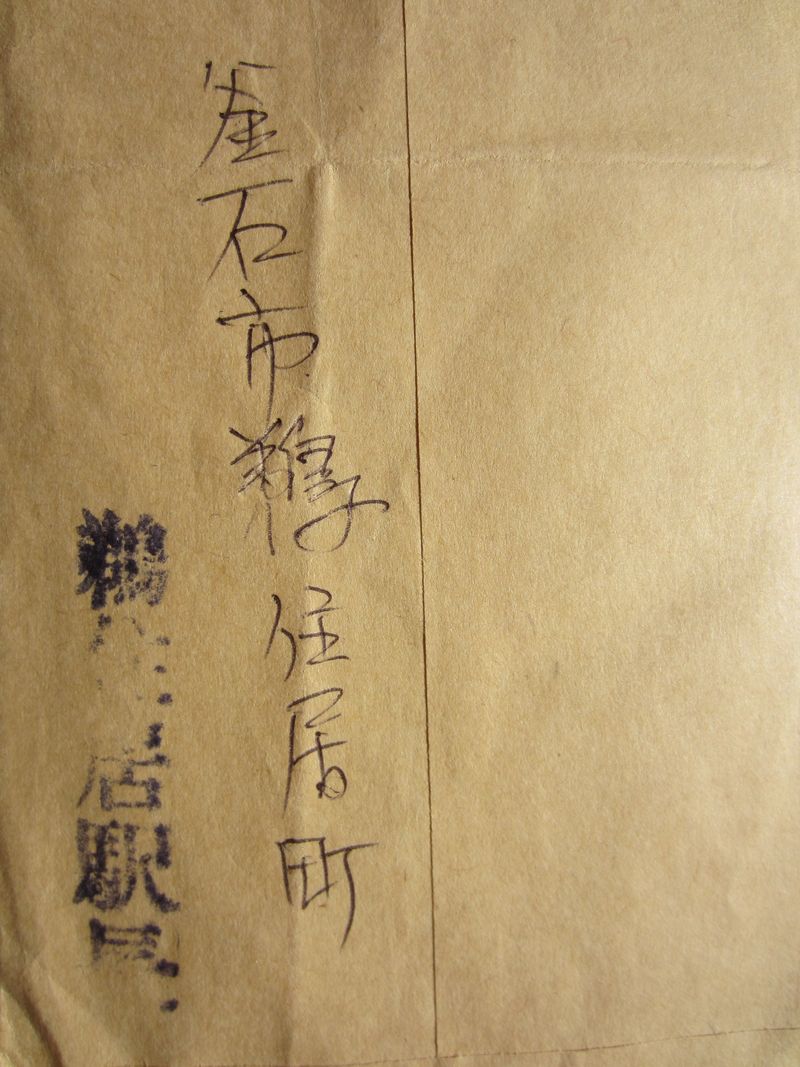 釜石市鵜住居町
鵜住居駅長